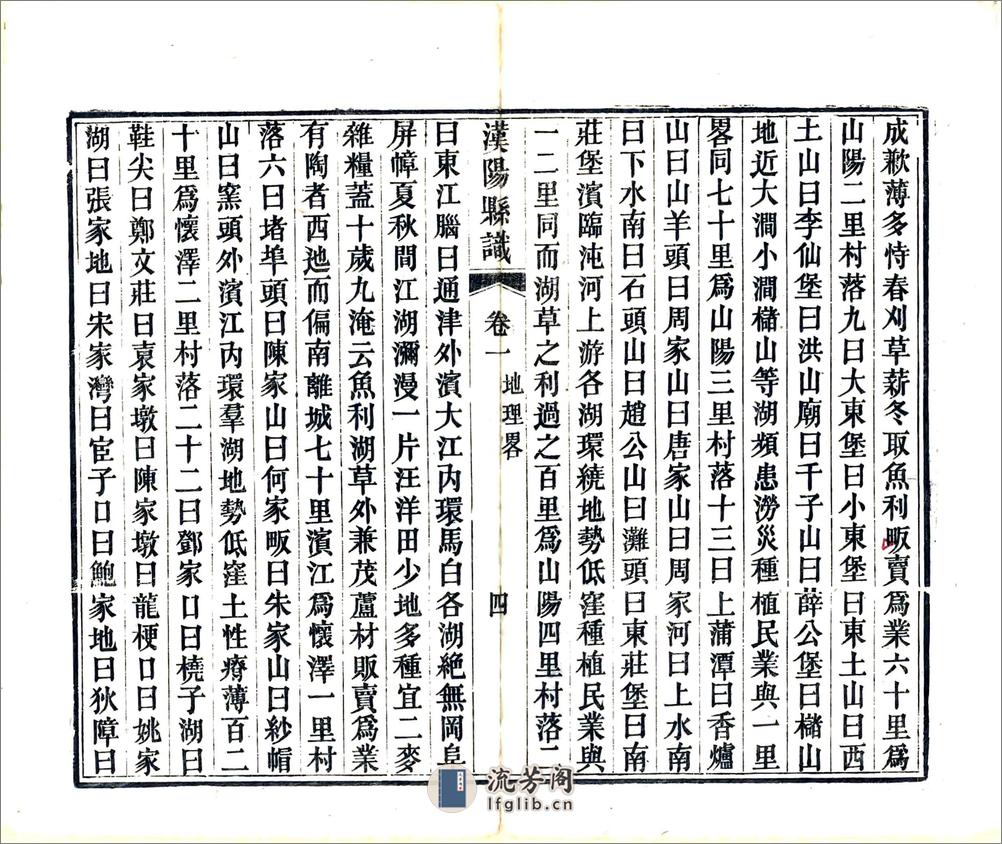 成歉薄多恃春刈草薪冬取魚利畈賣爲業六十里爲
山陽二里村落九曰大東堡曰小東堡曰東土山曰西
土山曰李仙堡曰洪山廟曰千子山曰薛公堡曰櫧山
地近大澗小澗櫧山等湖頻患澇災種植民業與一里
畧同七十里爲山陽三里村落十三曰上蒲潭曰香爐
山曰山羊頭曰周家山曰唐家山曰周家河曰上水南
曰下水南曰石頭山曰趙公山曰灘頭曰東莊堡曰南
莊堡濱臨沌河上游各湖環繞地勢低窪種植民業與
一二里同而湖草之利過之百里爲山陽四里村落二
漢陽縣識 卷一 地理畧 四
曰東江腦曰通津外濱大江內環馬白各湖絶無岡阜
屏幛夏秋間江湖瀰漫一片汪洋田少地多種宜二麥
雜糧蓋十歲九淹云魚利湖草外兼茂蘆材販賣爲業
有陶者西迆而偏南離城七十里濱江爲懷澤一里村
落六曰堵埠頭曰陳家山曰何家畈曰朱家山曰紗帽
山曰窯頭外濱江內環羣湖地勢低窪土性瘠薄百二
十里爲懷澤二里村落二十二曰鄧家口曰橈子湖曰
鞋尖曰鄭文莊曰袁家墩曰陳家墩曰龍梗口曰姚家
湖曰張家地曰宋家灣曰宦子口曰鮑家地曰狄障曰
流芳阁
lfglib.cn